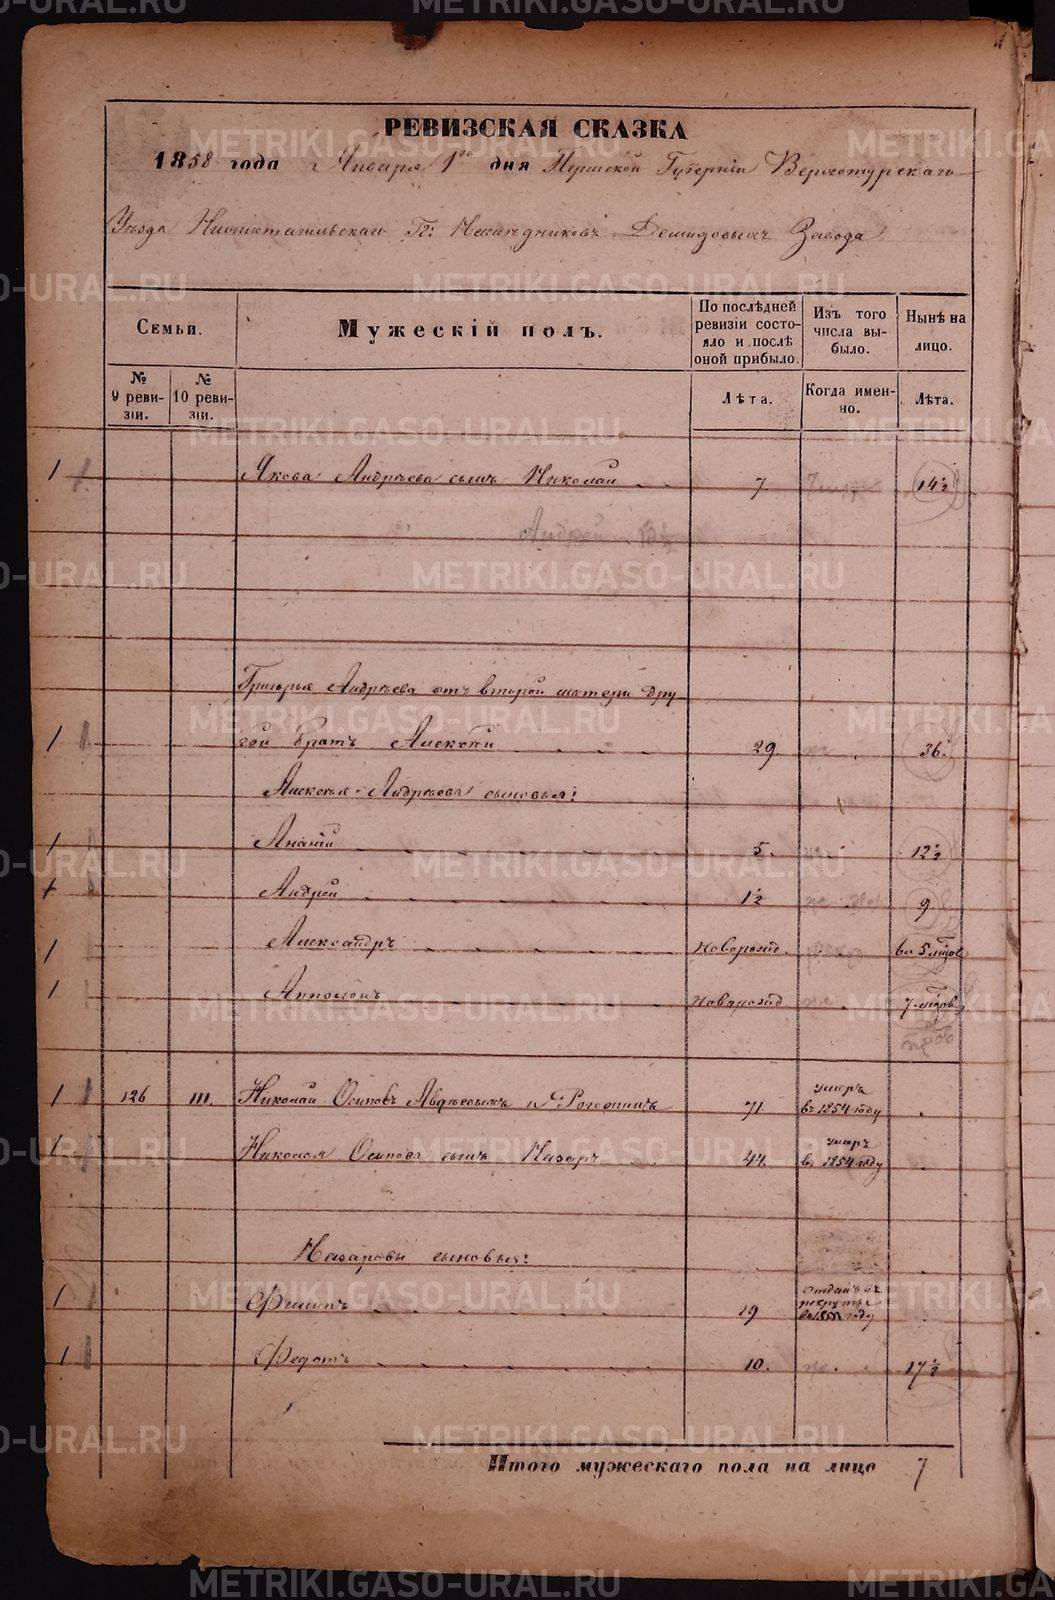 РЕВИЗСКАЯ СКАЗКА
1858 года Января 1го дня Пермской Губерніи Верхотурскаго
Уѣзда Нижнетагильскаго Гг: Наслѣдниковъ Демидовыхъ Завода
Семьи.
Мужескій полъ.
По послѣдней ревизіи состояло и послѣ оной прибыло.
Изъ того числа выбыло.
Нынѣ на лицо.
№ 9 ревизіи.
№ 10 ревизіи.
Лѣта.
Когда именно.
Лѣта.
1 1 Якова Андрѣева сынъ Николай 7 14½
Андрей 13½
Григорья Андрѣева отъ второй матери дру
1 1 гой братъ Алексѣй 29 36.
Алексѣя Андрѣева сыновья:
1 1 Ананій 5. 12½
1 Андрей 1½ 9
1 Александръ новорожд
1 Апполонъ новорожд
1 1 126 111. Николай Осиповъ Авдѣевыхъ 71 умеръ въ 1854 году
1 1 Николая Осипова сынъ Назаръ 47. умеръ въ 1854 году
Назаровы сыновья:
1 1 Филипъ 19 отданъ въ рекруты
1 1 Федотъ 10. 17½
Итого мужескаго пола на лицо 7
METRIKI.GASO-URAL.RU